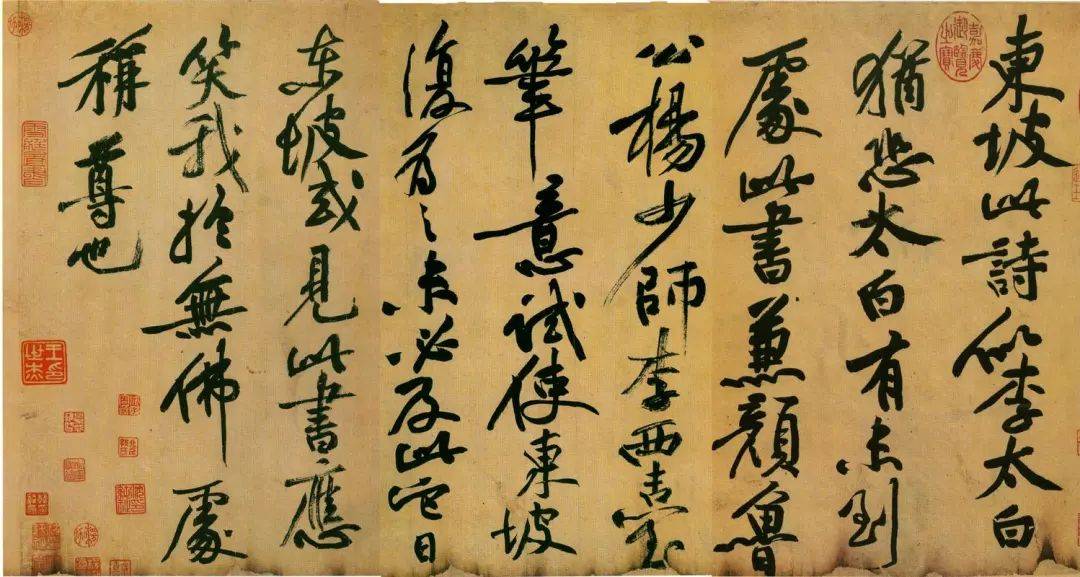 嘉慶御覽之寶
東坡此詩似李太白
猶恐太白有未到
處此書兼顏魯
公楊少師李西臺
筆意試使東坡
復為之未必及此它日
東坡或見此書應
笑我於無佛處
稱尊也